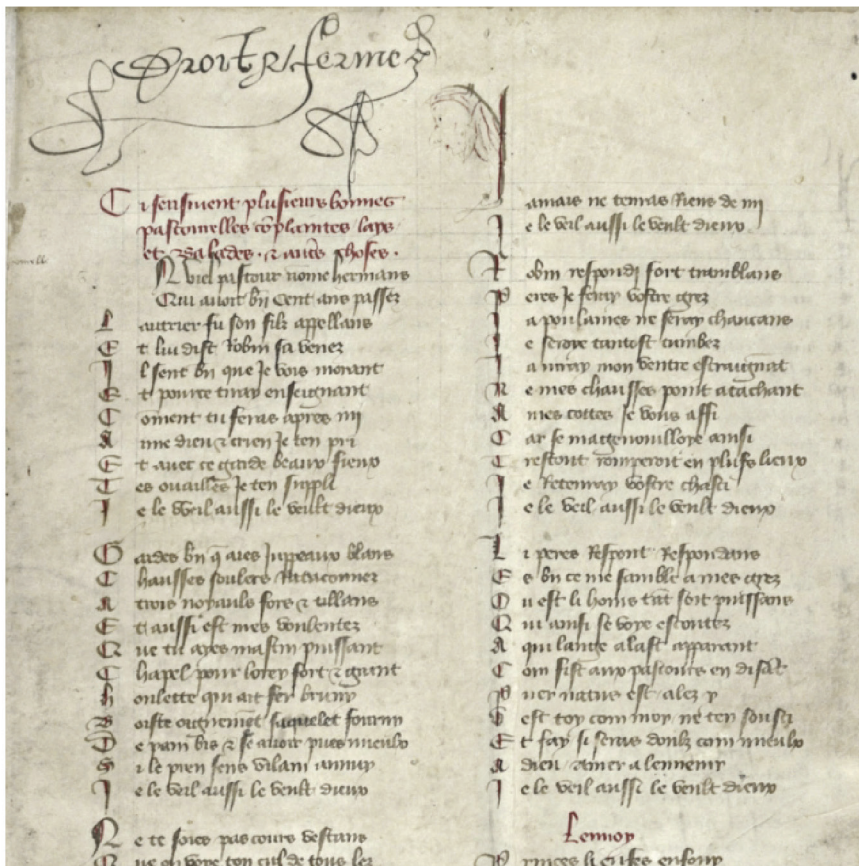 Droit & ferme
Ci sensuient plusieurs bonnes
pastourelles cōplaintes lays
et balades · & autrēs choses ·
Un viel pastour nome hermans
Qui auoit bn cent ans passez
L autrier fu son filz appellans
E t lui dist robin sa venez
I l sent bn que Je vois morant
E t pource tiray enseignant
C oment tu feras apres mi
A me dieu & crien Je ten pri
E t auec ce garde beaux fieux
T es ouailles Je ten suppli
I e le veil aussi le veult dieux
G ardes bn q̄ aies Juppeaux blans
C hausses soulers
A trois noyaulx fors & tillans
E t aussi est mes voulentez
Q ue tu ayes mastin puissant
C hapel pour lorey fort & grant
h oulette qui ait fer bruny
B oiste oignemēt saquelet fourny
D e pain bis & se auoir pues mieulx
S i le pren sens vilain annuy
I e le veil aussi le veult dieux
N e te soies pas cours vestans
Q ue en voye ton cul de tous lez
I amais ne tenras Riens de mi
I e le veil aussi le veult dieux
R obin respondi fort tramblans
P eres Je feray vostre grez
I a poulaines ne seray chaucans
I e seroye tantost tumbez
I a nyray mon ventre estraignāt
N e mes chausses point atachant
A mes cottes Je vous affi
C ar se magenouilloye ainsi
C restout romperoit en plus̄s lieux
I e Retenray vostre chasti
I e le veil aussi le veult dieux
L i peres Respont Respondans
E s bn ce me samble a mes grez
O u est li homs tāt soit puissans
Q ui ainsi se voye escoutez
A qui lange alast apparant
C om fist aux pastours en disāt
P uer natus est alez y
V est toy com moy ne ten soussi
E t fay si seras doulx com mieulx
A dieu lennemi
I e le veil aussi le veult dieux
Lenuoy
P rinces li